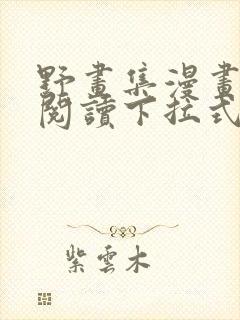 野畫集漫畫
閱讀下拉式
紫雲木